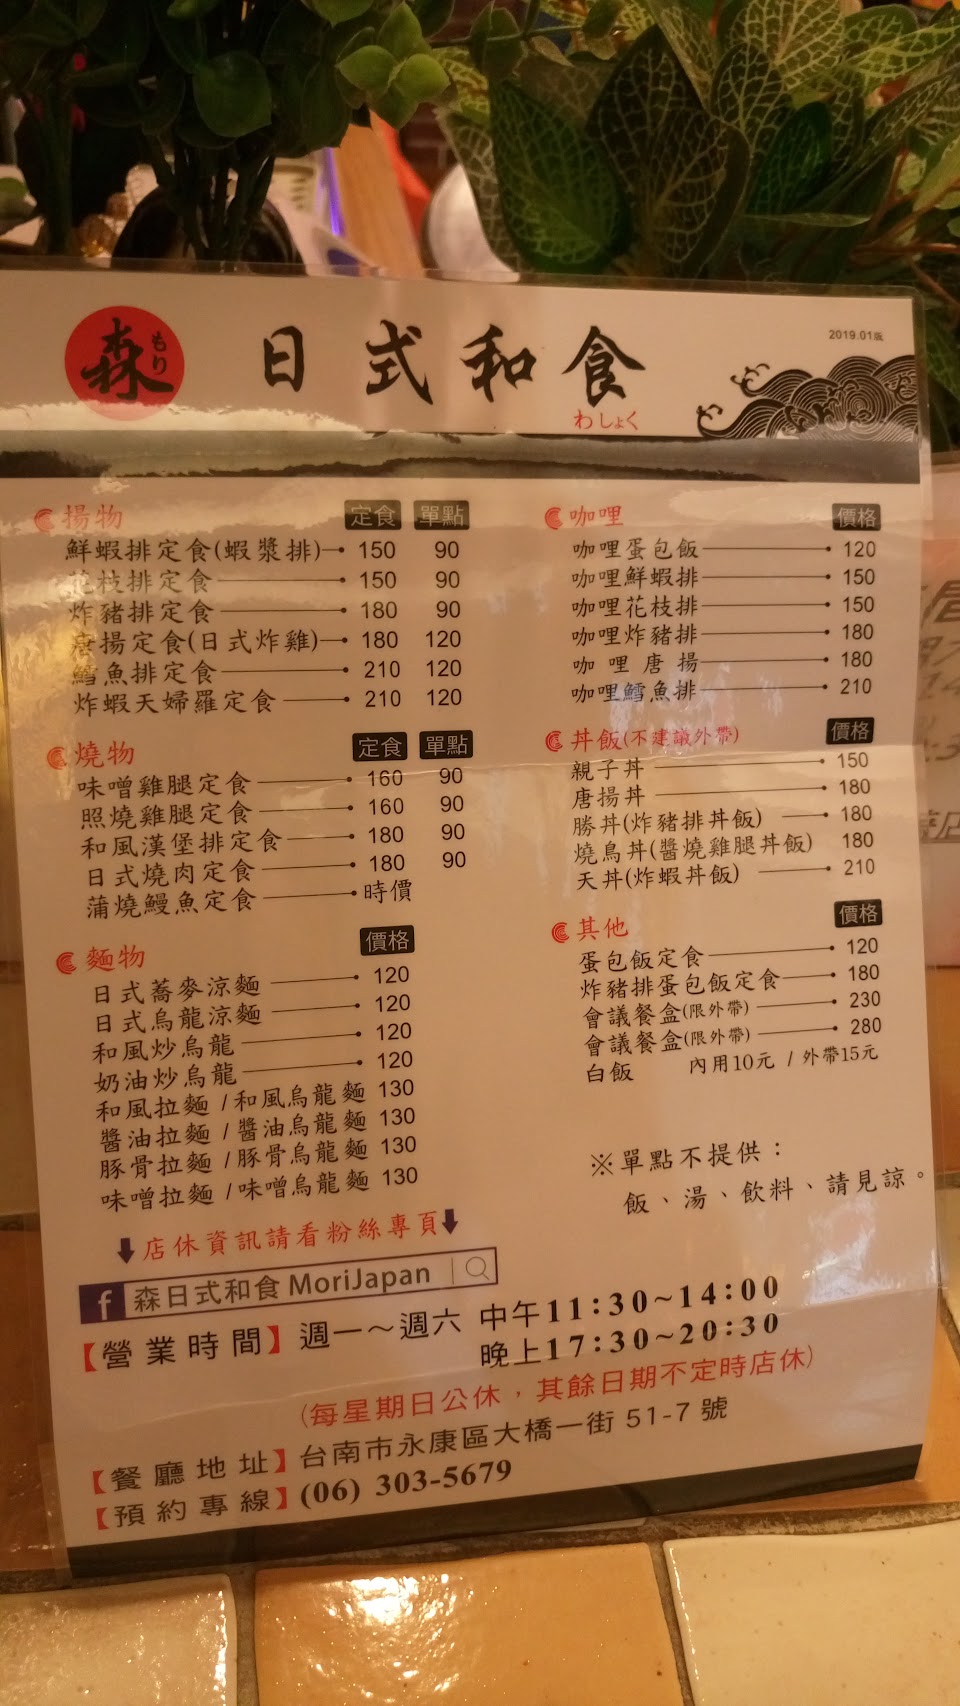 森 もり 日式和食
わしょく
2019.01版
揚物 定食 單點
鮮蝦排定食(蝦漿排) 150 90
花枝排定食 150 90
炸豬排定食 180 90
唐揚定食(日式炸雞) 180 120
鱈魚排定食 210 120
炸蝦天婦羅定食 210 120
燒物 定食 單點
味噌雞腿定食 160 90
照燒雞腿定食 160 90
和風漢堡排定食 180 90
日式燒肉定食 180 90
蒲燒鰻魚定食 時價
麵物 價格
日式蕎麥涼麵 120
日式烏龍涼麵 120
和風炒烏龍 120
奶油炒烏龍 120
和風拉麵 / 和風烏龍麵 130
醬油拉麵 / 醬油烏龍麵 130
豚骨拉麵 / 豚骨烏龍麵 130
味噌拉麵 / 味噌烏龍麵 130
咖哩 價格
咖哩蛋包飯 120
咖哩鮮蝦排 150
咖哩花枝排 150
咖哩炸豬排 180
咖哩唐揚 180
咖哩鱈魚排 210
丼飯(不建議外帶) 價格
親子丼 150
唐揚丼 180
勝丼(炸豬排丼飯) 180
燒鳥丼(醬燒雞腿丼飯) 180
天丼(炸蝦丼飯) 210
其他 價格
蛋包飯定食 120
炸豬排蛋包飯定食 180
會議餐盒(限外帶) 230
會議餐盒(限外帶) 280
白飯 內用10元 / 外帶15元
※單點不提供：
飯、湯、飲料、請見諒。
店休資訊請看粉絲專頁
f 森日式和食 MoriJapan
【營業時間】週一～週六 中午11:30~14:00
晚上17:30~20:30
(每星期日公休，其餘日期不定時店休)
【餐廳地址】台南市永康區大橋一街 51-7 號
【預約專線】(06) 303-5679